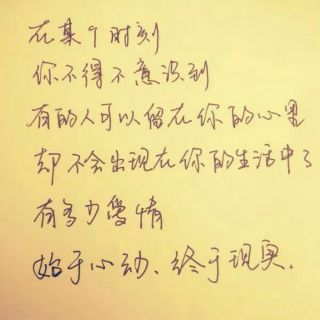 在某个时刻
你不得不意识到
有的人可以留在你的心里
却不会出现在你的生活中了
有多少爱情
始于心动、终于现实.